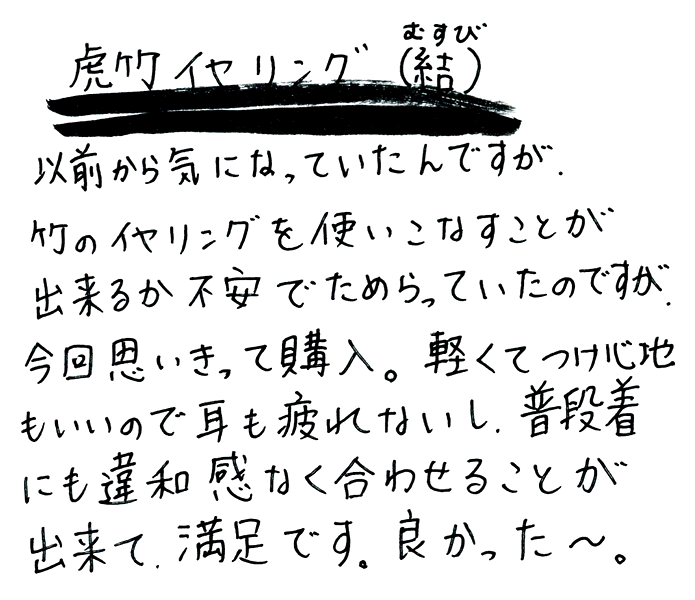 虎竹イヤリング（結）
むすび
以前から気になっていたんですが、
竹のイヤリングを使いこなすことが
出来るか不安でためらっていたのですが、
今回思いきって購入。軽くてつけ心地
もいいので耳も疲れないし、普段着
にも違和感なく合わせることが
出来て、満足です。良かった～。